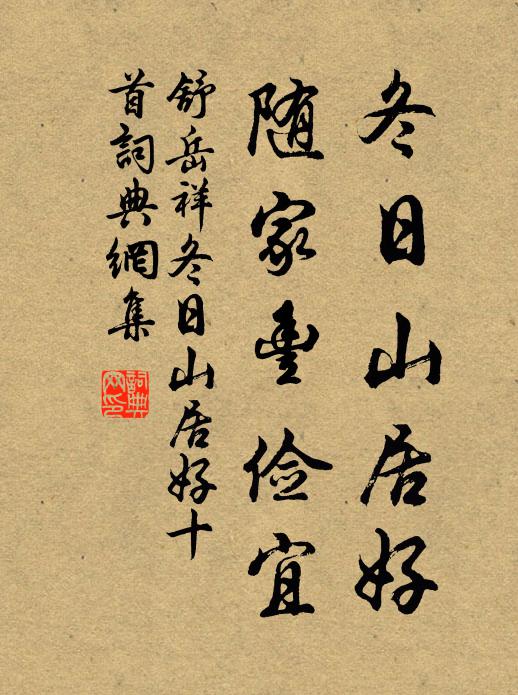 冬日山居好
随家豊俭宜
舒岳祥冬日山居好十
首詞典網集
詞典
网印